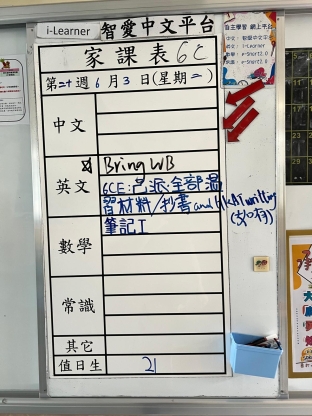 i-Learner 智愛中文平台
家課表 6C
第二十週 6 月 3 日(星期二)
中文
英文
Bring WB
6CE:已派:全部温
習材料/抄書 and HKAT writing
(如有)
數學
筆記I
常識
其它
值日生 21
自主學習 網上平台
中文:智愛中文平台
英文:i-Learner